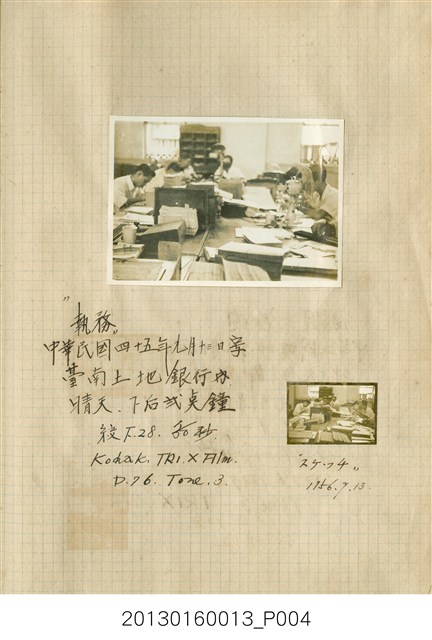 "執務"
中華民國四十五年九月十三日寫
臺南土地銀行內
晴天、下后弍点鐘
絞F.28. 1/50秒.
Kodak. TRI.X Film.
D.76. Tone.3.
"スケッチ"
1956.9.13.
20130160013_P004